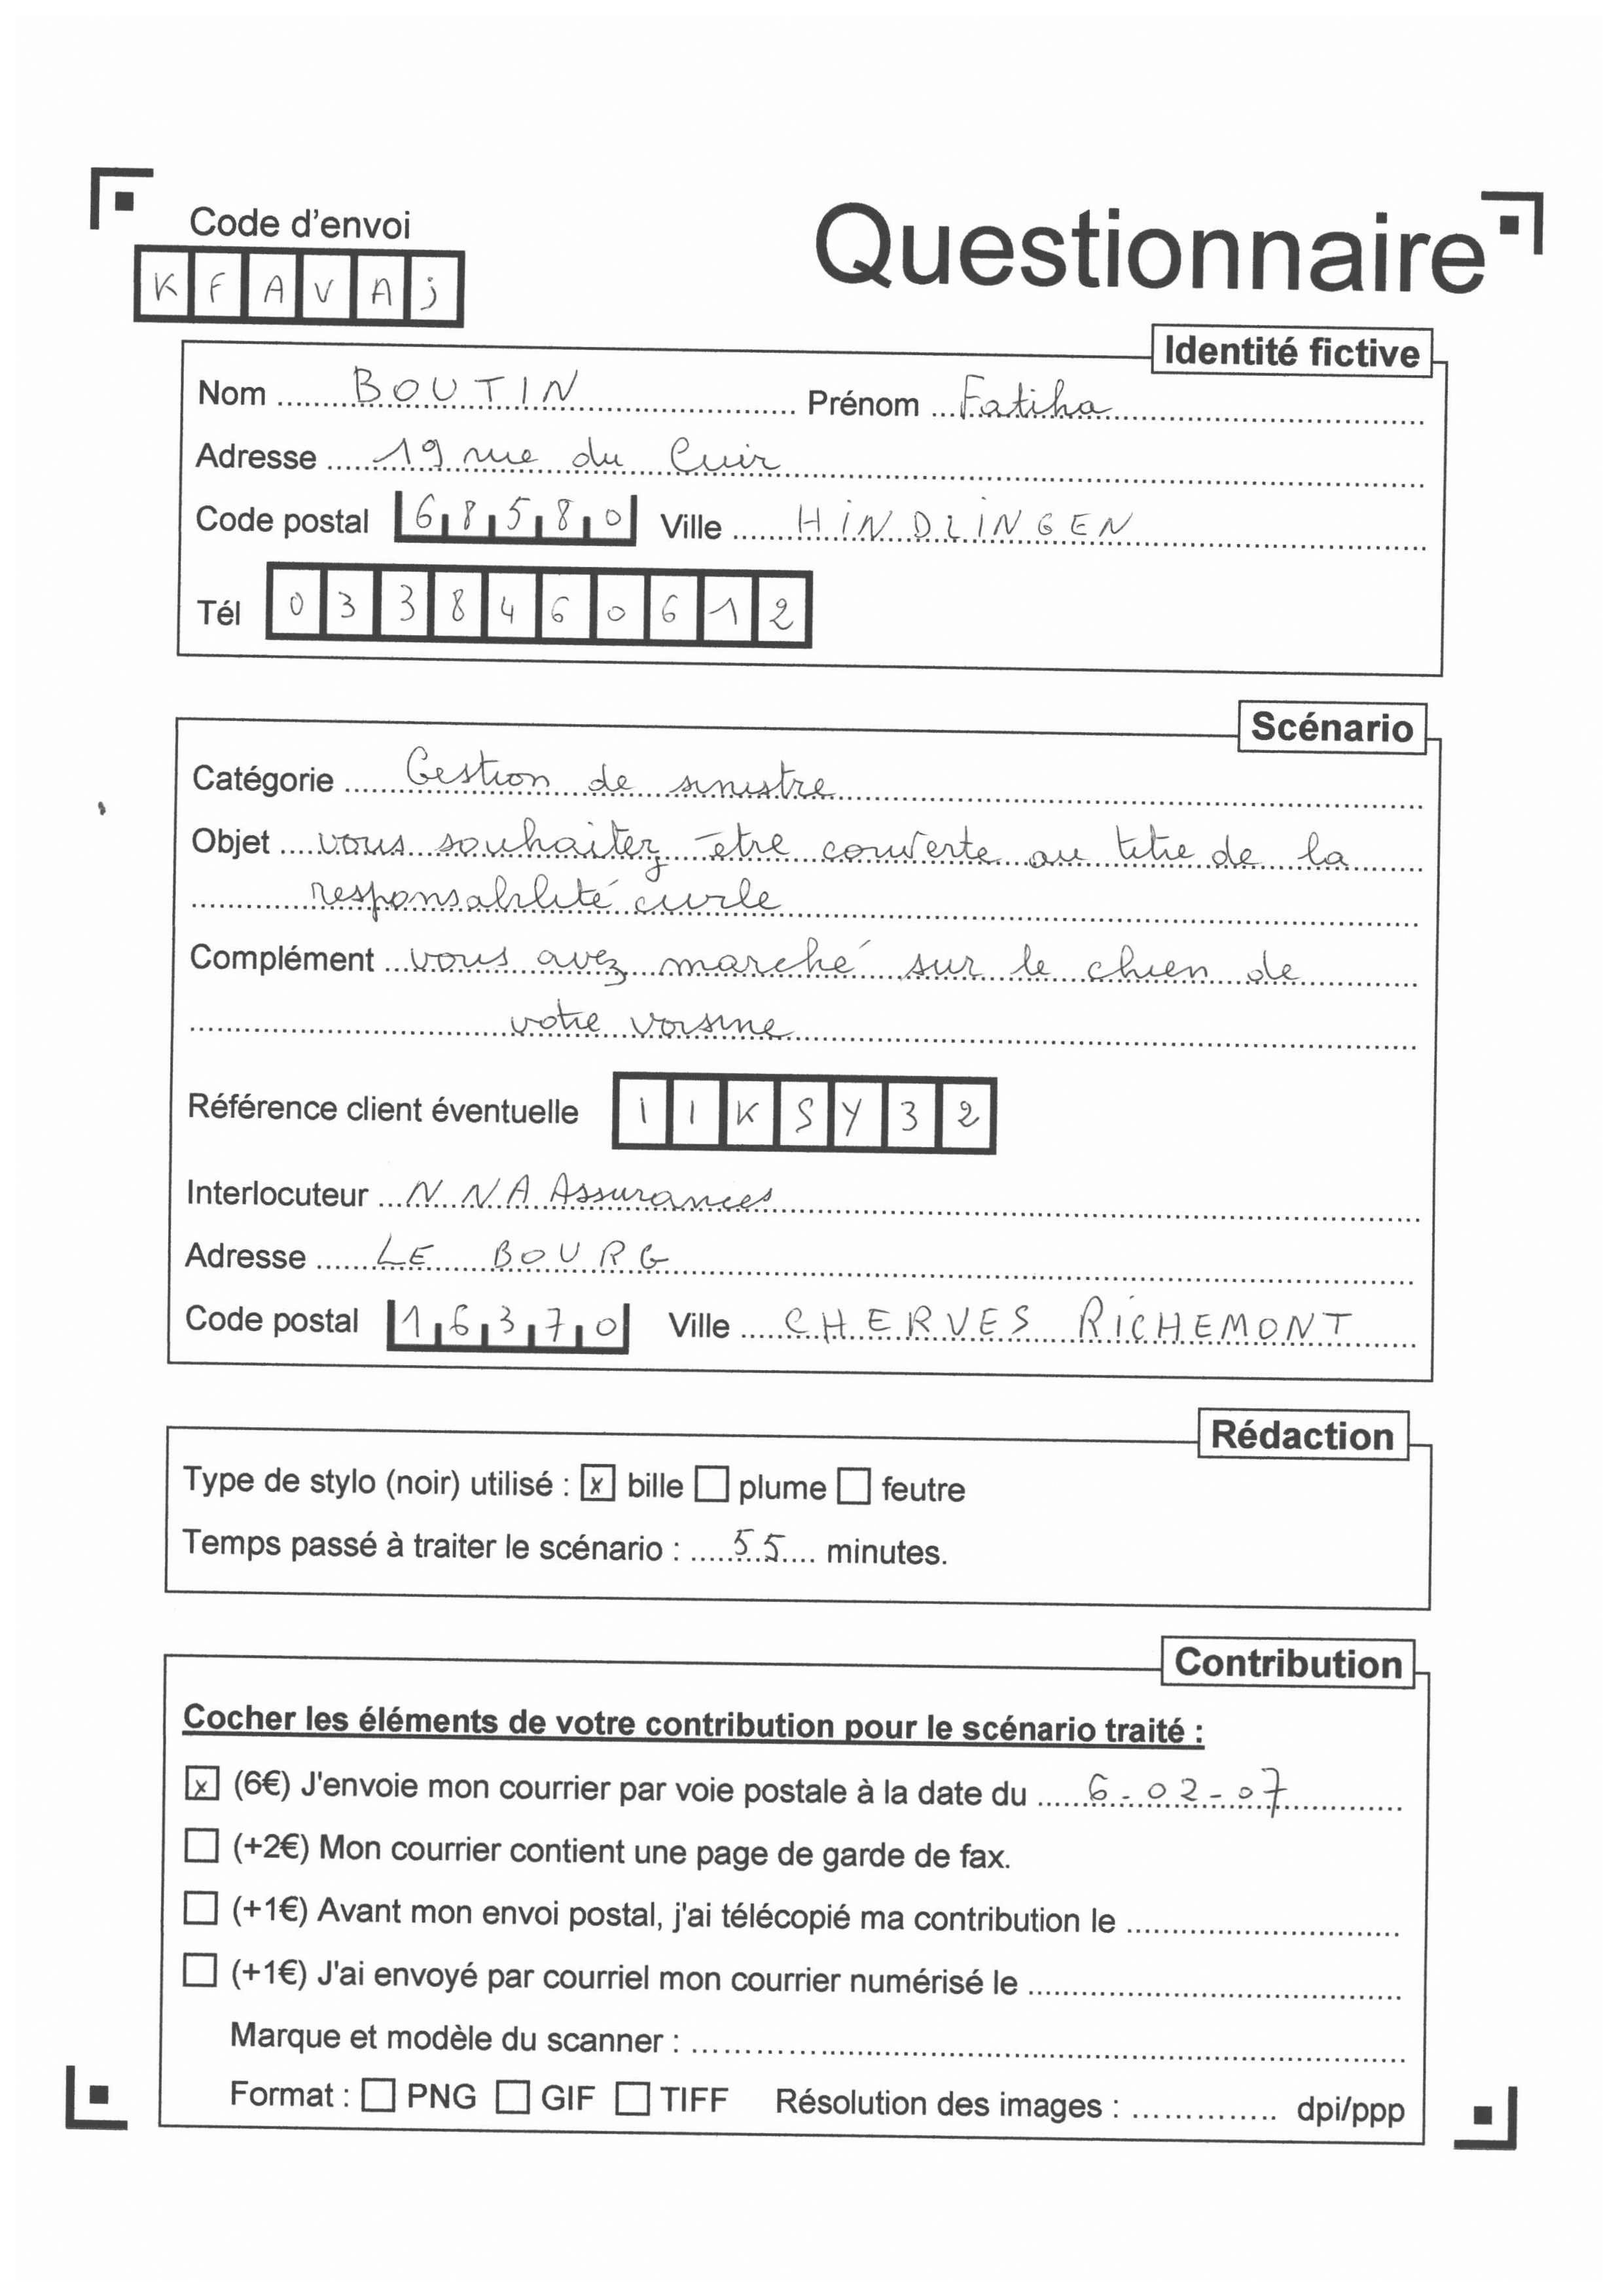 Code d'envoi
Questionnaire
K F A V A j
Identité fictive
Nom BOUTIN Prénom Fatiha
Adresse 19 rue du Cuir
Code postal 68580 Ville HINDLINGEN
Tél 0338460612
Scénario
Catégorie Gestion de sinistre
Objet vous souhaitez être couverte au titre de la
responsabilité civile
Complément vous avez marché sur le chien de
votre voisine
Référence client éventuelle I I K S Y 3 2
Interlocuteur NNA Assurances
Adresse LE BOURG
Code postal 16370 Ville CHERVES RICHEMONT
Rédaction
Type de stylo (noir) utilisé : x bille plume feutre
Temps passé à traiter le scénario : 55 minutes.
Contribution
Cocher les éléments de votre contribution pour le scénario traité :
x (6€) J'envoie mon courrier par voie postale à la date du 6-02-07
(+2€) Mon courrier contient une page de garde de fax.
(+1€) Avant mon envoi postal, j'ai télécopié ma contribution le
(+1€) J'ai envoyé par courriel mon courrier numérisé le
Marque et modèle du scanner :
Format : PNG GIF TIFF Résolution des images : dpi/ppp